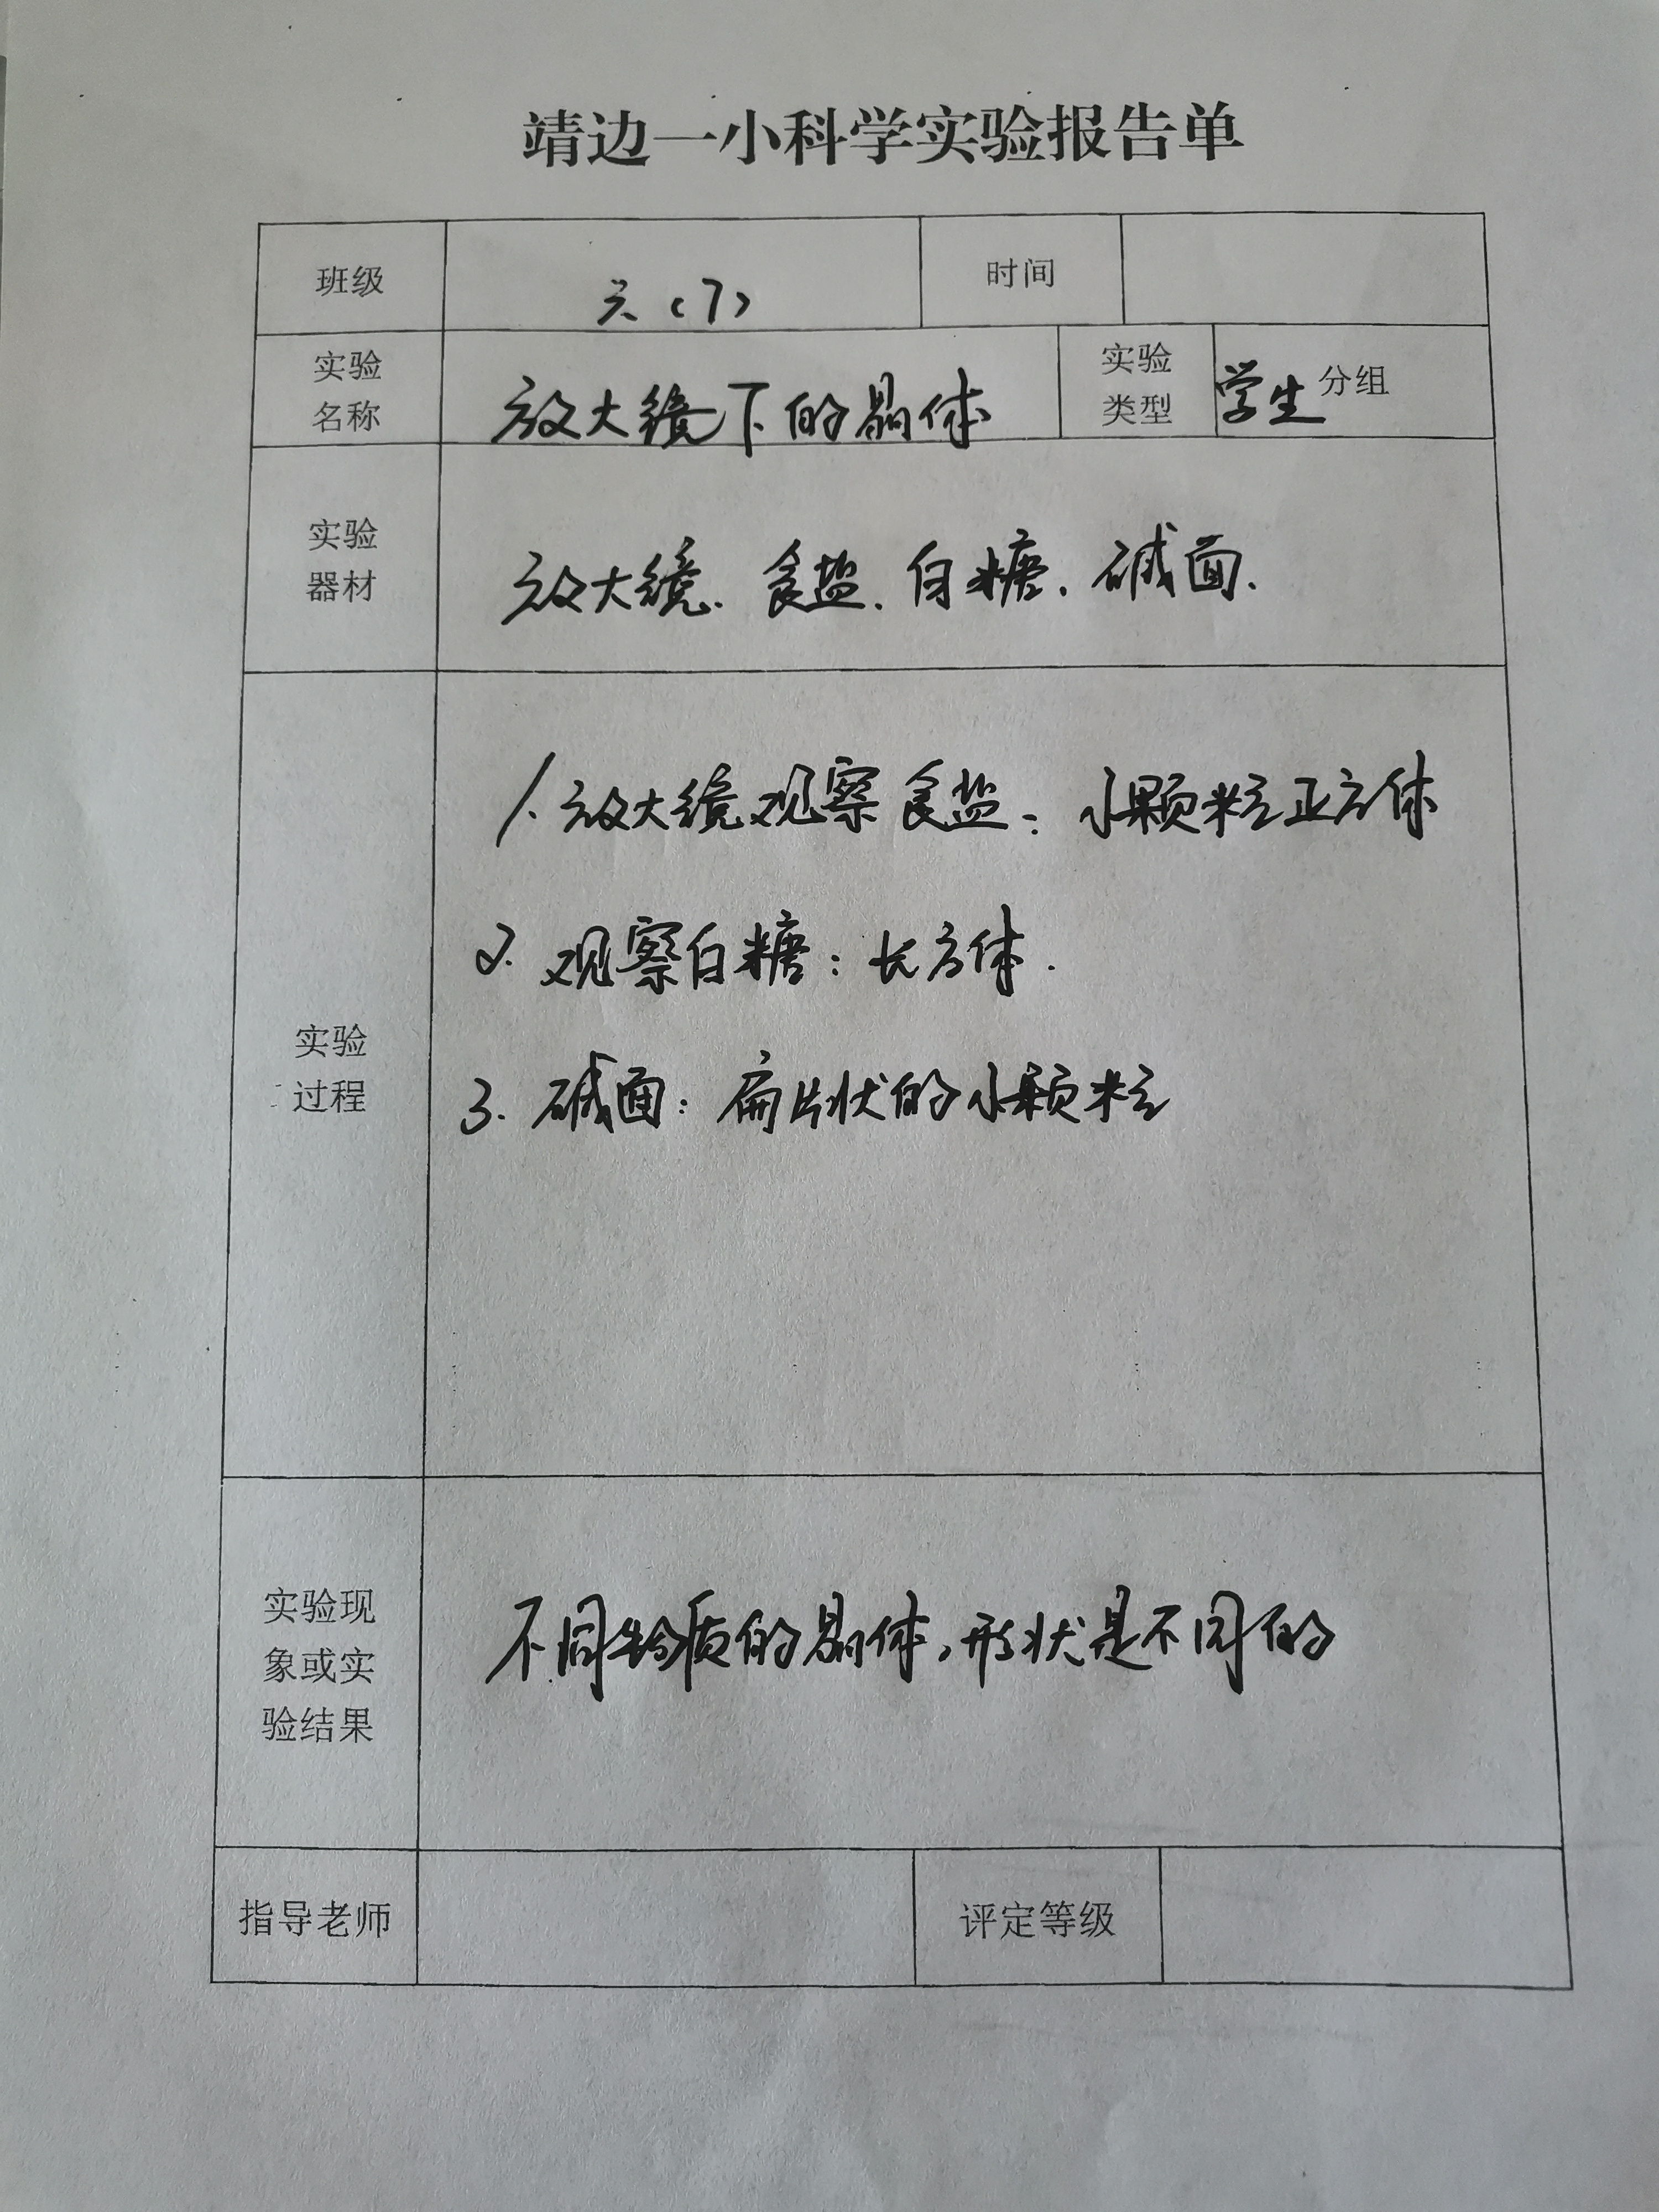 靖边一小科学实验报告单
班级 六（7） 时间
实验名称 放大镜下的晶体 实验类型 学生分组
实验器材 放大镜．食盐．白糖．碱面．
实验过程
1.放大镜观察食盐：小颗粒正方体
2.观察白糖：长方体．
3.碱面：扁片状的小颗粒
实验现象或实验结果 不同物质的晶体，形状是不同的
指导老师 评定等级